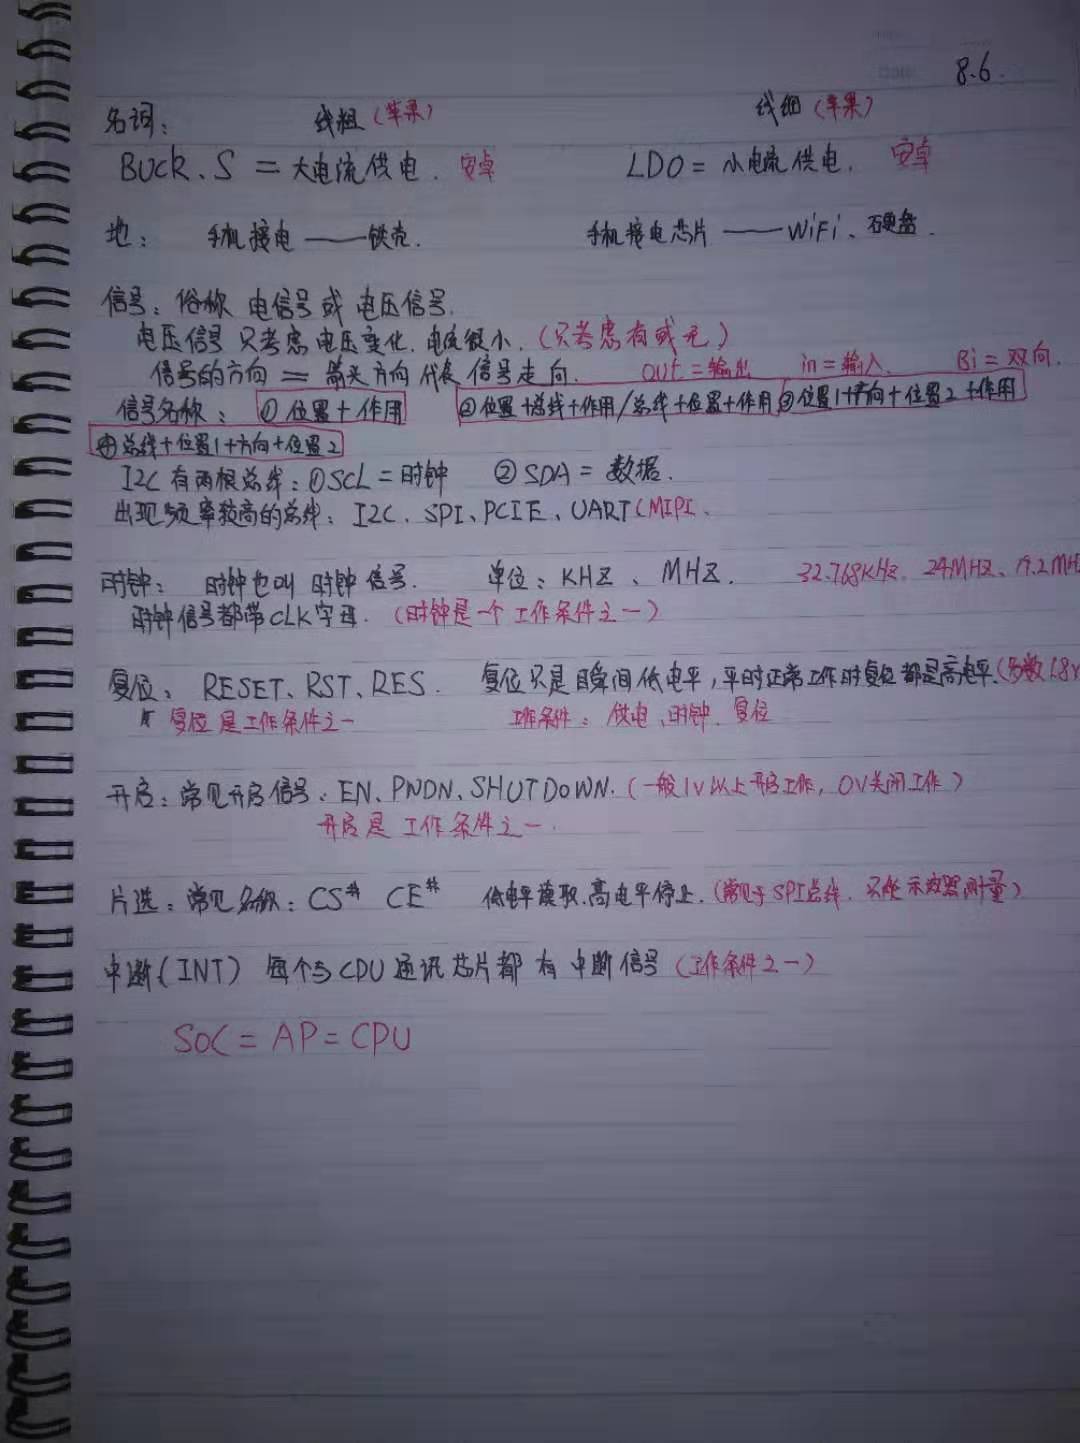 8.6.
名词： 线组（苹果） 线组（苹果）
BUCK、S = 大电流供电. 安卓 LDO = 小电流供电. 安卓
地： 手机接电——铁壳. 手机接电芯片——WiFi、硬盘.
信号：俗称 电信号或 电压信号.
电压信号 只考虑电压变化. 电流很小.（只考虑有或无）
信号的方向 = 箭头方向代表信号走向. OUT = 输出 in = 输入. Bi = 双向.
信号名称： ①位置+作用 ②位置+总线+作用/总线+位置+作用 ③位置1+方向+位置2+作用
④总线+位置1+方向+位置2
I2C有两根总线：①SCL = 时钟 ②SDA = 数据.
出现频率较高的总线：I2C、SPI、PCIE、UART（MIPI、
时钟： 时钟也叫 时钟信号. 单位：KHZ、MHZ. 32.768KHz、24MHZ、19.2MH
时钟信号都带CLK字母.（时钟是一个工作条件之一）
复位： RESET、RST、RES. 复位只是瞬间低电平，平时正常工作时复位都是高电平.（多数1.8V
复位是工作条件之一 工作条件：供电、时钟、复位
开启：常见开启信号：EN、PWDN、SHUTDOWN.（一般1V以上开启工作，0V关闭工作）
开启是 工作条件之一.
片选：常见名称：CS# CE# 低电平读取.高电平停止.（常见于SPI总线. 只能示波器测量）
中断（INT） 每个与CDU通讯芯片都有中断信号（工作条件之一）
SOC = AP = CPU